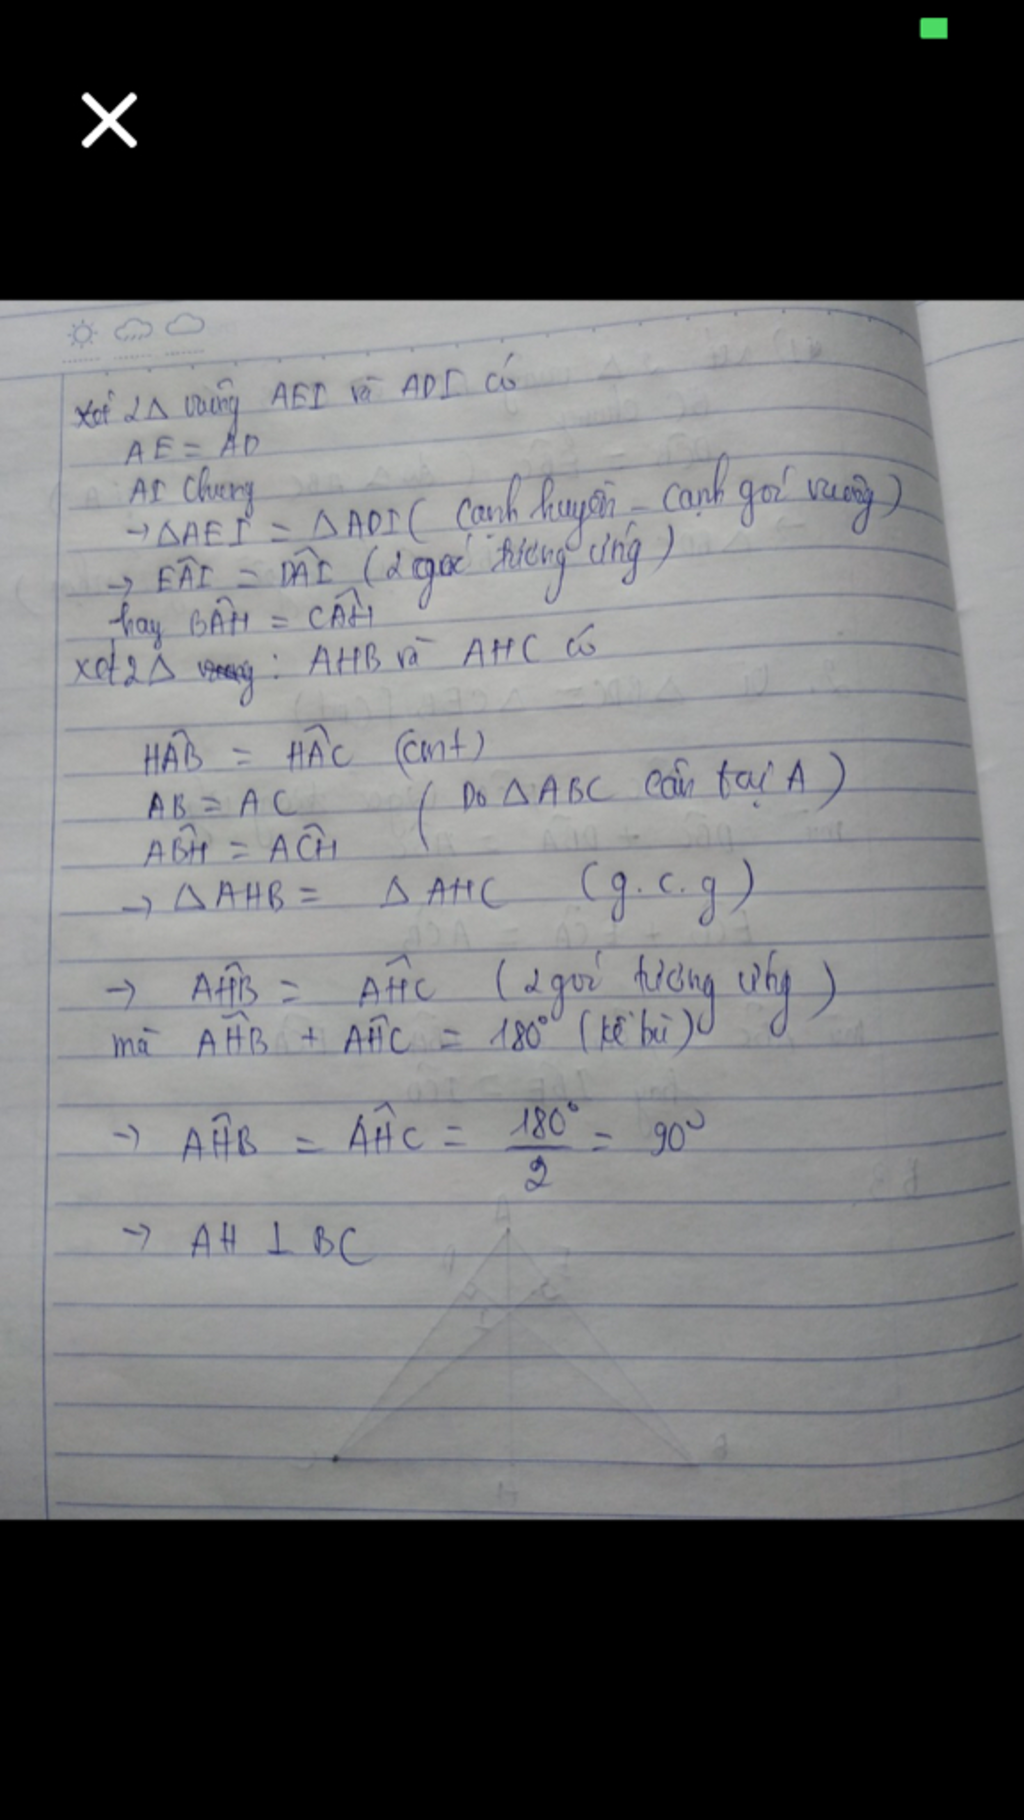 Xét 2Δ vuông AEI và ADI có
AE = AD
AI Chung
→ ΔAEI = ΔADI ( cạnh huyền - cạnh góc vuông )
→ EÂI = DÂI ( 2 góc tương ứng )
hay BÂH = CÂH
xét 2Δ : AHB và AHC có
HÂB = HÂC (cmt)
AB = AC ( Do ΔABC cân tại A )
AB̂H = AĈH
→ ΔAHB = ΔAHC (g.c.g)
→ AĤB = AĤC ( 2 góc tương ứng )
mà AĤB + AĤC = 180° (kề bù)
→ AĤB = AĤC = 180°/2 = 90°
→ AH ⊥ BC